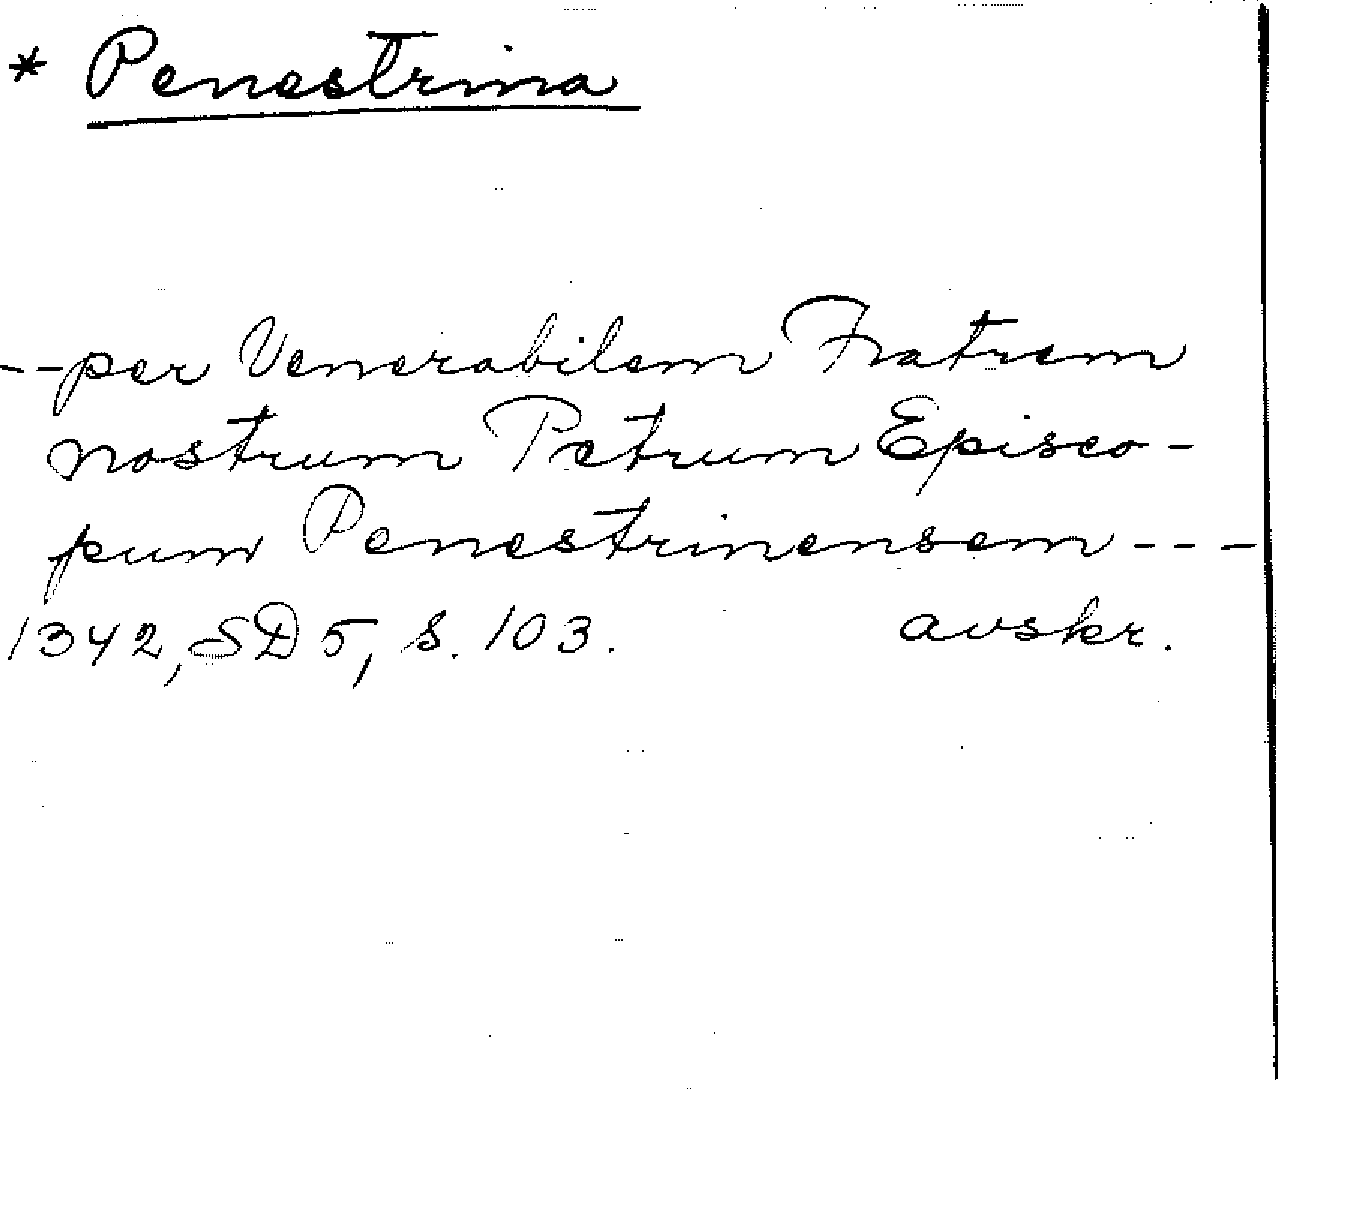 * Penestrina
--per Venerabilem Fratrem
nostrum Petrum Episco-
pum Penestrinensem---
1342, SD 5, s. 103. avskr.